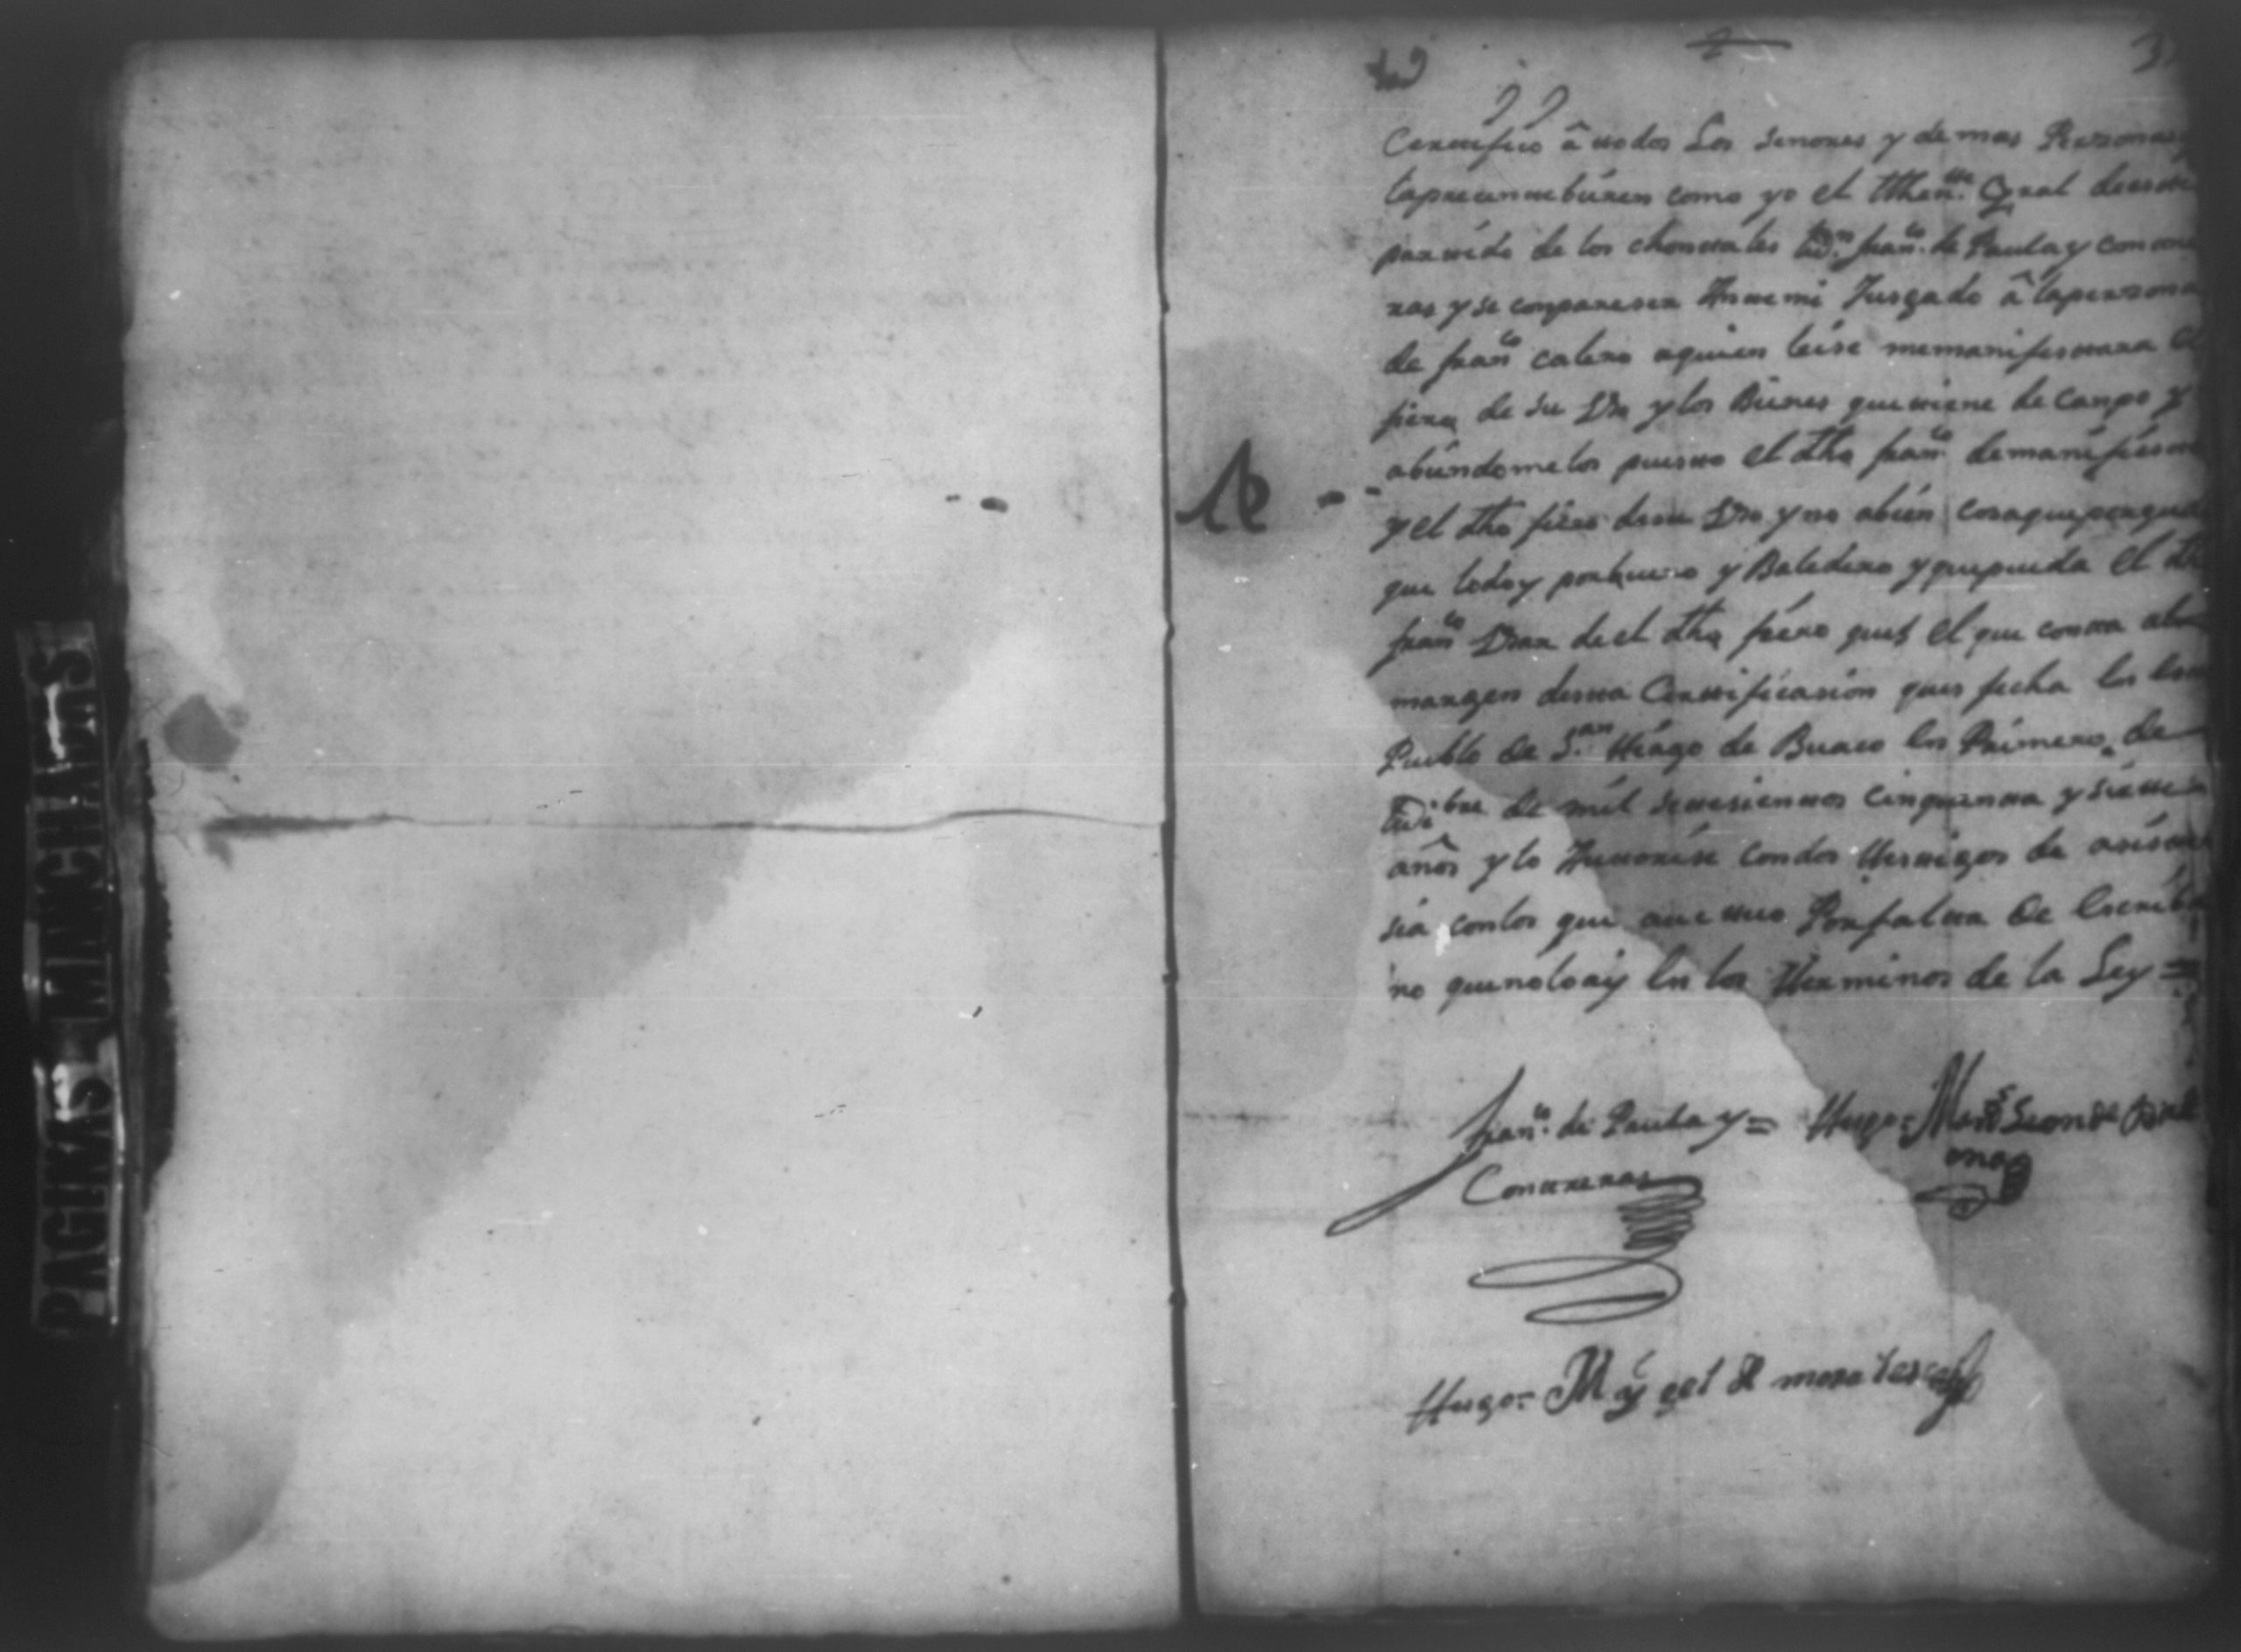 PAGINAS MANCHADAS
Certifico â todos Los Senores y demas Personas
la precente bieren como yo el tthen.te Gral de este
partido de los chontales Dn. fran.co de Paula y contre
ras y se comparesen Ante mi Jusgado â la persona
de fran.co calero a quien leise me manifestara el
fiero de su Uso y los Bienes que tiene de Canpo y
abiendomelos puesto el dho fran.co de manifiesto
y el dho fiero de su Uso y no abien cosa que
que le doy por bueno y Baledero y que pueda el dho
fran.co Usar de el dho fiero ques el que consta al
margen de esta Certificasion ques fecha En este
Pueblo de S.an ttiago de Buaco En Primero de
Di.bre de mil setesientos Cinquenta y siette
años y lo Auttorise con dos ttestigos de asisten
sia con los que actuo Por falta de Escriba
no que no lo ay En los tterminos de la Ley =
fran.co de Paula y = ttsgo = Leon de
Contreras
ttsgo =